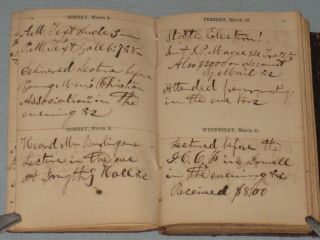 SUNDAY, March 8.
A.M. Text Luke 3
P.M. Text Gal 6: 7 8
Delivered Lecture before
Young Mens Christian
Association in the
evening &c
MONDAY, March 9.
Heard Mr Burlingame
Lecture in the eve
at Smyths Hall &c
TUESDAY, March 10.
State Election!
Also on account
By Mail &c
Attended
in the eve &c
WEDNESDAY, March 11.
Lectured before the
I.O.O.F in Lowell
in the evening &c
Received $8.00